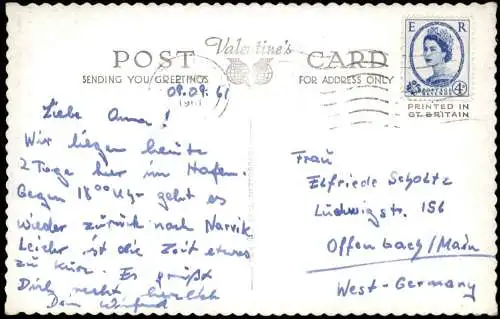 POST Valentine's CARD
SENDING YOU GREETINGS
FOR ADDRESS ONLY
E R
POSTAGE REVENUE 4D
PRINTED IN
GT. BRITAIN
1961
09.09.61
Liebe Omma!
Wir liegen heute
2 Tage hier im Hafen.
Gegen 18⁰⁰ Uhr geht es
wieder zurück nach Narvik
Leider ist die Zeit etwas
zu kurz. Es grüßt
Dich recht herzlich
Dein Winfried
Frau
Elfriede Scholtz
Ludwigstr. 156
Offenbach/Main
West-Germany